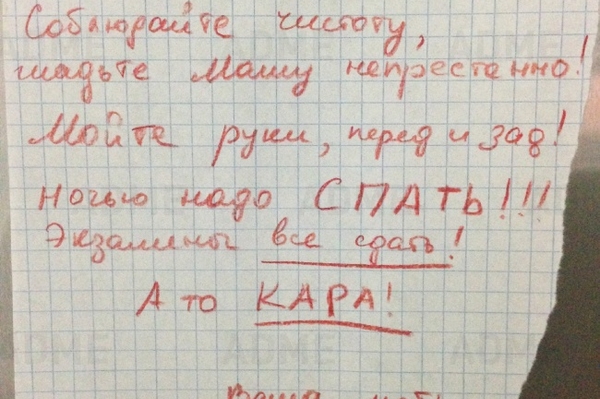 Соблюдайте чистоту,
гладьте Машу непрестанно!
Мойте руки, перед и зад!
Ночью надо СПАТЬ!!!
Экзамены все сдать!
А то КАРА!
ADME ADME ADME